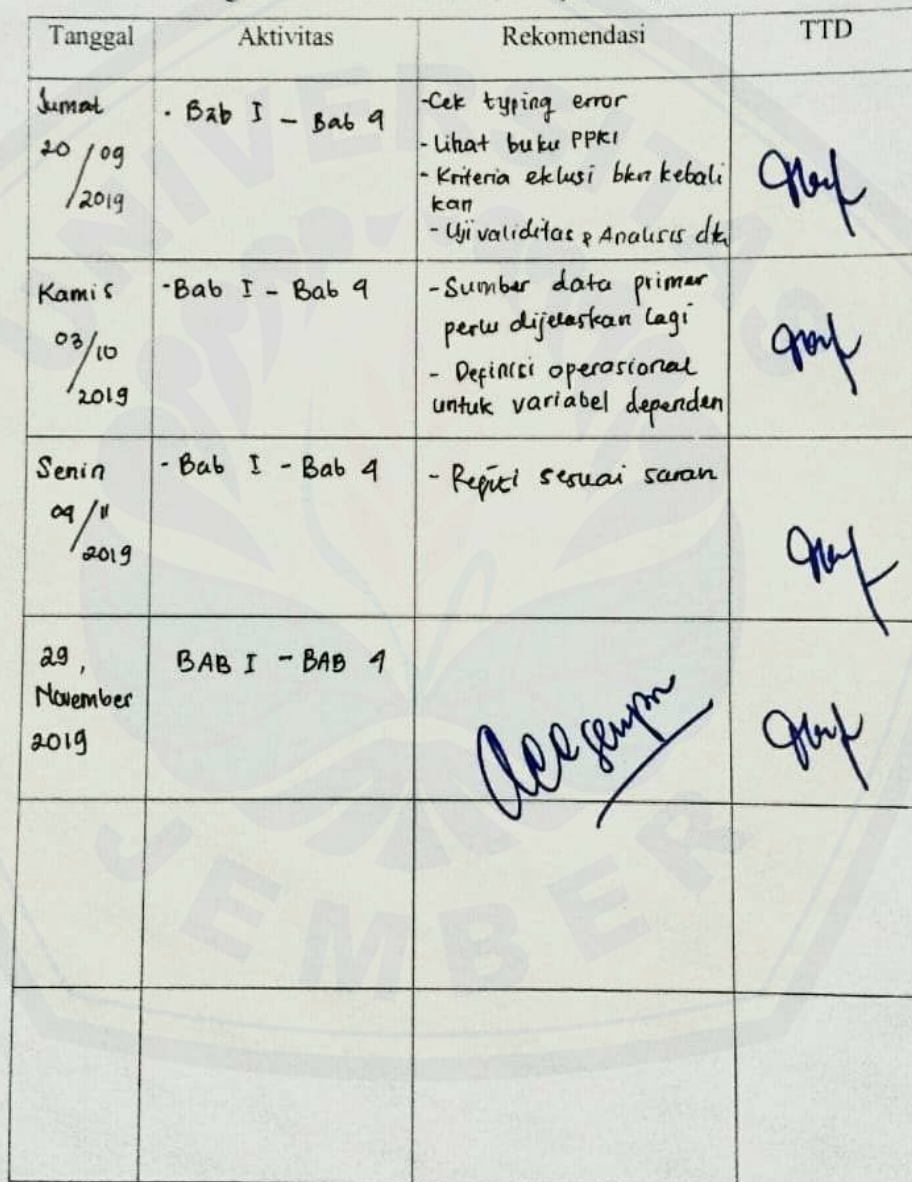 Tanggal Aktivitas Rekomendasi TTD
Jumat
20/09/2019
- Bab I - Bab 4
-Cek typing error
-Lihat buku PPKI
-Kriteria eklusi bkn kebali
kan
-Uji validitas & Analisis dta
Kamis
03/10/2019
-Bab I - Bab 4
-Sumber data primer
perlu dijelaskan lagi
- Definisi operasional
untuk variabel dependen
Senin
04/11/2019
- Bab I - Bab 4
- Revisi sesuai saran
29,
November
2019
BAB I - BAB 4
Acc sempro
UNIVERSITAS
JEMBER